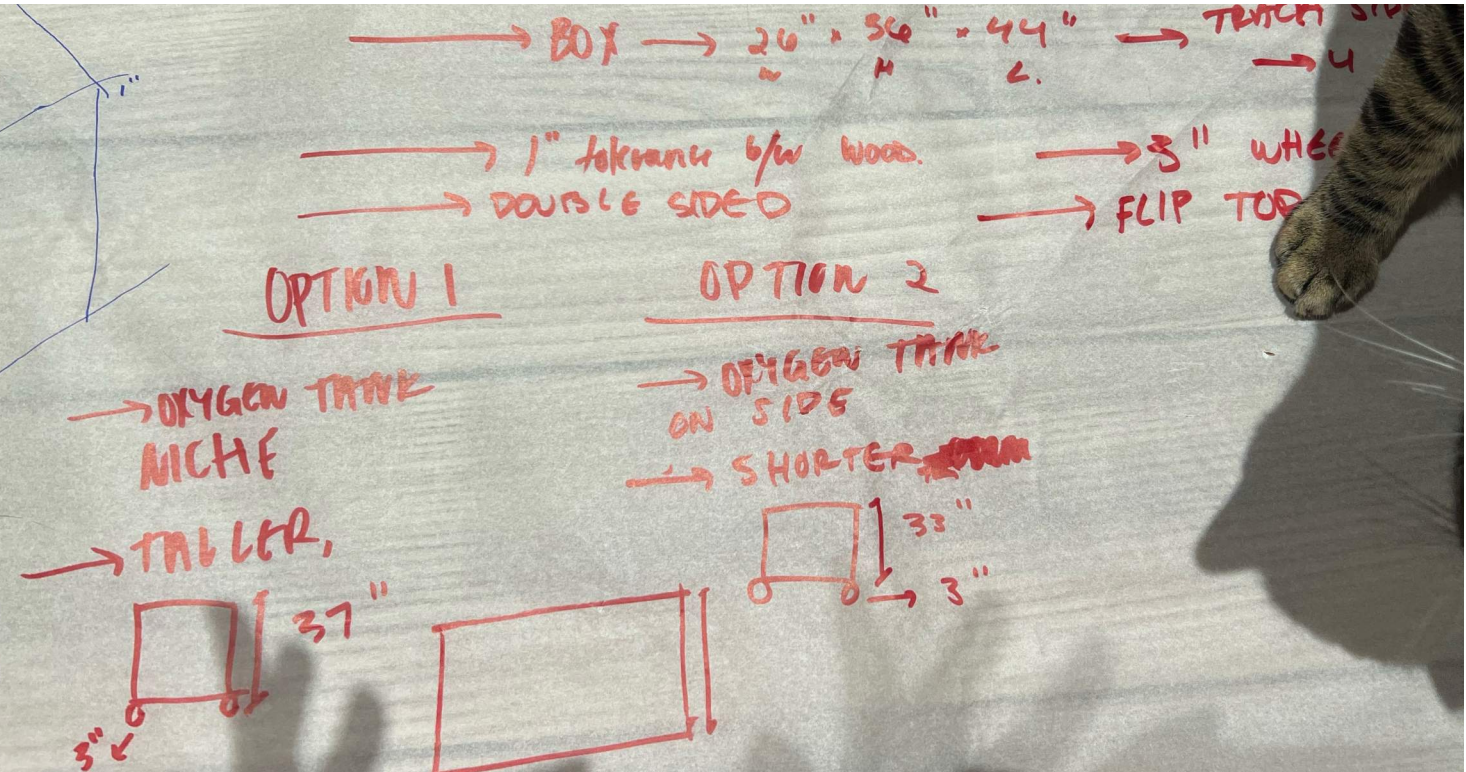 → BOX → 26" × 36" × 44" →
W H L.
→ 4
1"
→ 1" tolerance b/w WOOD. → 3"
→ DOUBLE SIDED → FLIP TOP
OPTION 1 OPTION 2
→ OXYGEN TANK
NICHE
→ TALLER,
37"
3"
→ OXYGEN TANK
ON SIDE
→ SHORTER
33"
→ 3"